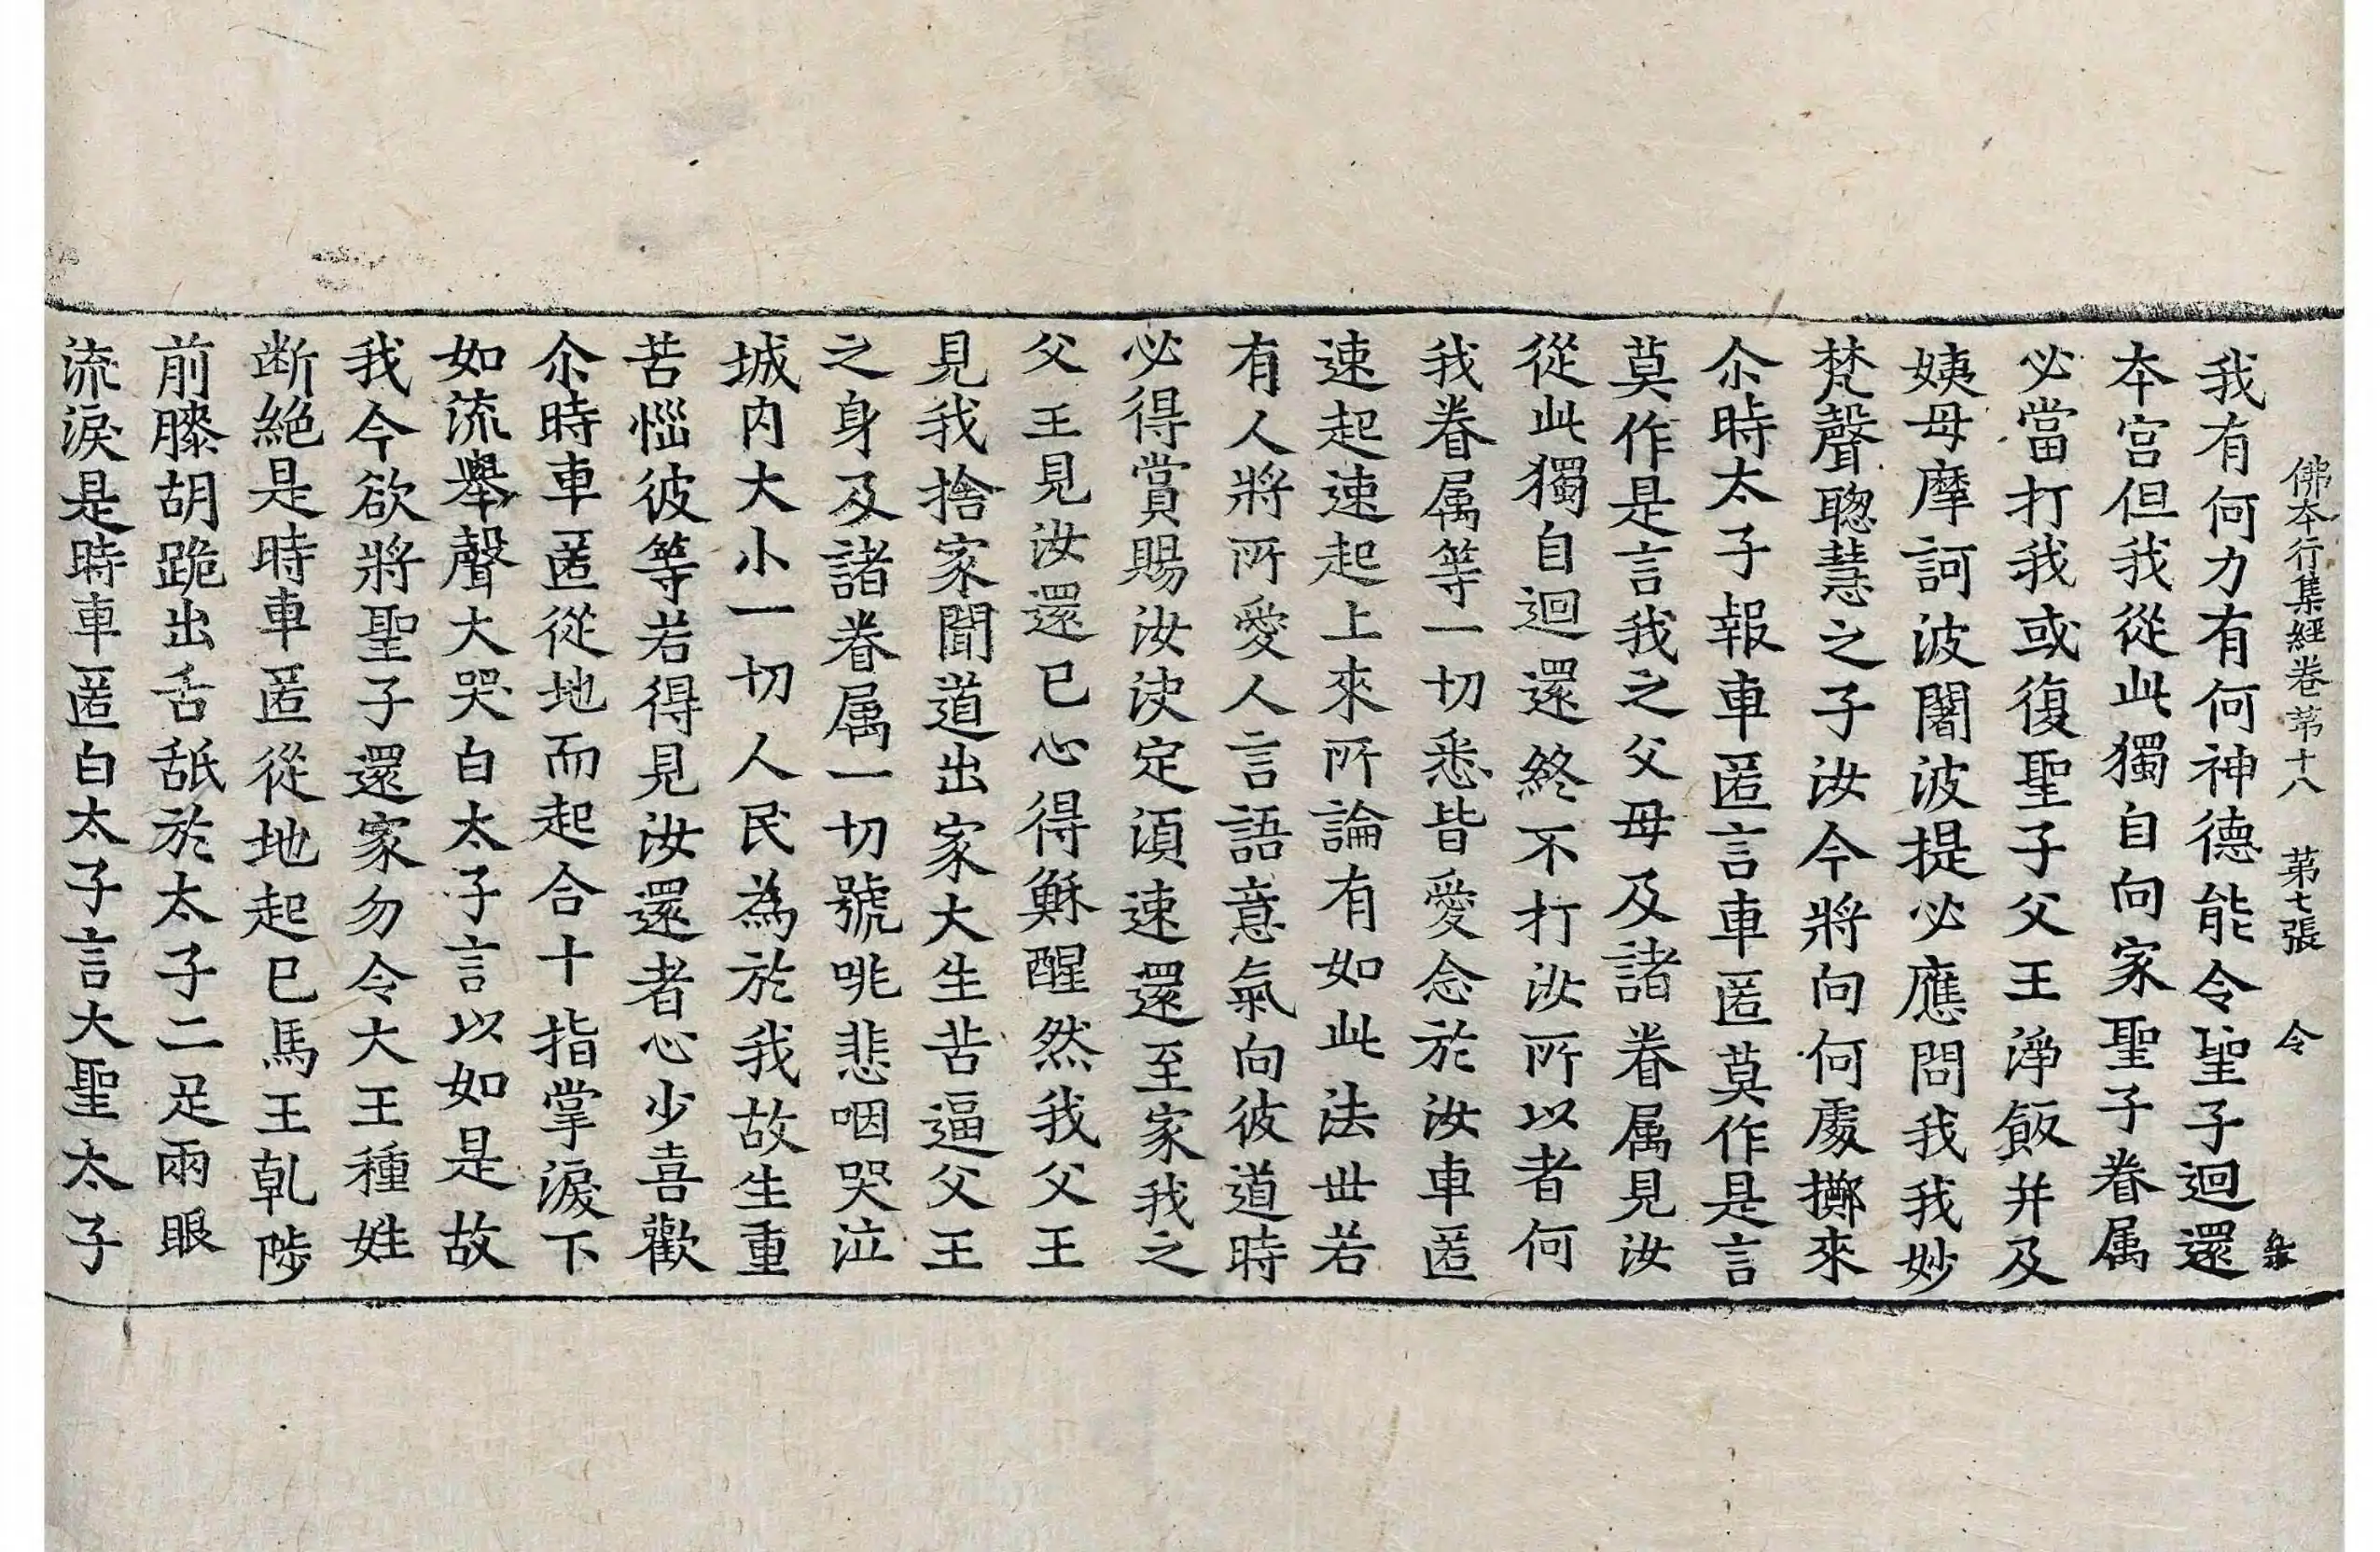 佛本行集經卷苐十八 苐七張 令
我有何力有何神德能令聖子迴還
本宮但我從此獨自向家聖子眷属
必當打我或復聖子父王淨飯并及
姨母摩訶波闍波提必應問我我妙
梵聲聦慧之子汝今將向何處擲來
尒時太子報車匿言車匿莫作是言
莫作是言我之父母及諸眷属見汝
從此獨自迴還終不打汝所以者何
我眷属等一切悉皆愛念於汝車匿
速起速起上來所論有如此法世若
有人將所愛人言語意氣向彼道時
必得賞賜汝决定湏速還至家我之
父王見汝還已心得穌醒然我父王
見我捨家聞道出家大生苦逼父王
之身及諸眷属一切號咷悲咽哭泣
城内大小一切人民為於我故生重
苦惱彼等若得見汝還者心少喜歡
尒時車匿從地而起合十指掌淚下
如流舉聲大哭白太子言以如是故
我今欲將聖子還家勿令大王種姓
断絕是時車匿從地起已馬王乹陟
前膝胡跪出舌舐於太子二足兩眼
流淚是時車匿白太子言大聖太子